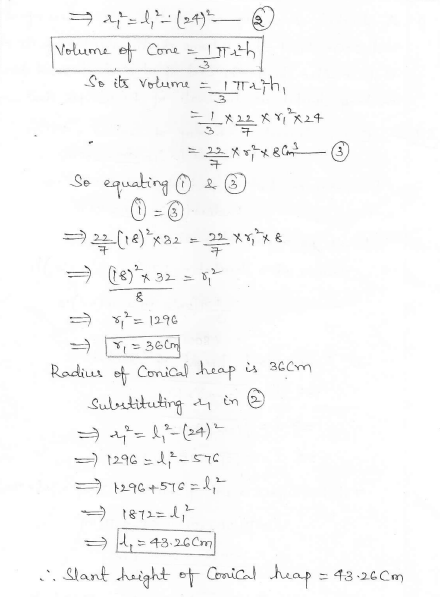 ⇒ r₁² = l₁² - (24)² — ②
Volume of Cone = 1/3 πr²h
So its volume = 1/3 πr₁²h₁
= 1/3 × 22/7 × r₁² × 24
= 22/7 × r₁² × 8 Cm³ — ③
So equating ① & ③
① = ③
⇒ 22/7 (18)² × 32 = 22/7 × r₁² × 8
⇒ (18)² × 32 / 8 = r₁²
⇒ r₁² = 1296
⇒ r₁ = 36Cm
Radius of Conical heap is 36Cm
Substituting r₁ in ②
⇒ r₁² = l₁² - (24)²
⇒ 1296 = l₁² - 576
⇒ 1296 + 576 = l₁²
⇒ 1872 = l₁²
⇒ l₁ = 43.26Cm
∴ Slant height of Conical heap = 43.26Cm